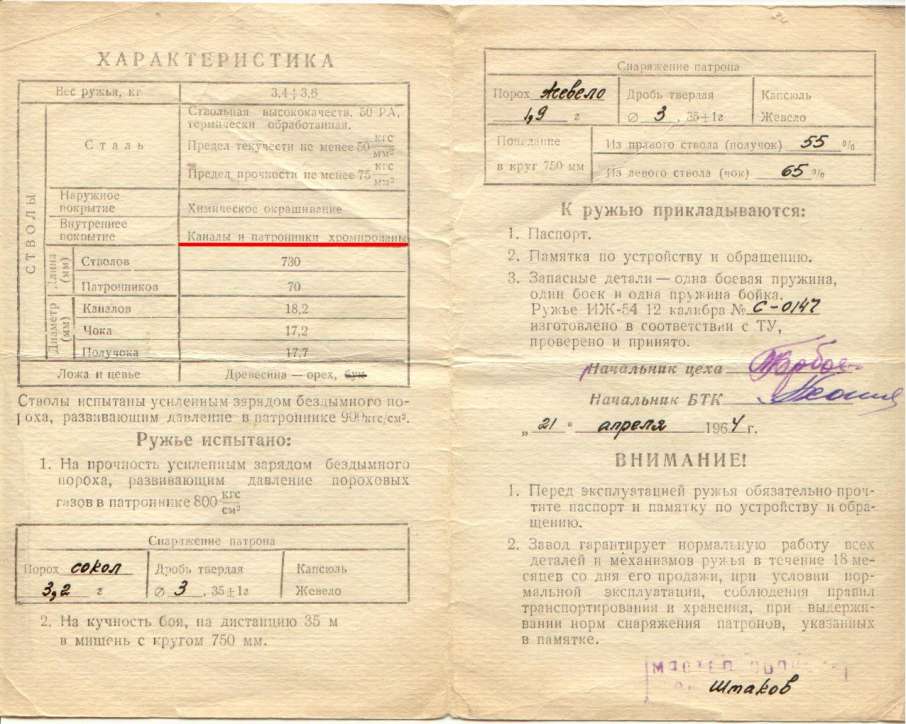 ХАРАКТЕРИСТИКА
Вес ружья, кг 3,4÷3,6
СТВОЛЫ
Сталь
Ствольная высококачеств. 50 РА,
термически обработанная.
Предел текучести не менее 50 кгс/мм²
Предел прочности не менее 75 кгс/мм²
Наружное
покрытие
Химическое окрашивание
Внутреннее
покрытие
Каналы и патронники хромированы
Длина (мм)
Стволов 730
Патронников 70
Диаметр (мм)
Каналов 18,2
Чока 17,2
Получока 17,7
Ложа и цевье Древесина — орех, бук
Стволы испытаны усиленным зарядом бездымного по-
роха, развивающим давление в патроннике 900 кгс/см².
Ружье испытано:
1. На прочность усиленным зарядом бездымного
пороха, развивающим давление пороховых
газов в патроннике 800 кгс/см²
Снаряжение патрона
Порох сокол Дробь твердая Капсюль
3,2 г ∅ 3, 35±1г Жевело
2. На кучность боя, на дистанцию 35 м
в мишень с кругом 750 мм.
Снаряжение патрона
Порох Жевело Дробь твердая Капсюль
1,9 г ∅ 3, 35±1г Жевело
Попадание
в круг 750 мм
Из правого ствола (получок) 55 %
Из левого ствола (чок) 65 %
К ружью прикладываются:
1. Паспорт.
2. Памятка по устройству и обращению.
3. Запасные детали — одна боевая пружина,
один боек и одна пружина бойка.
Ружье ИЖ-54 12 калибра № С-0147
изготовлено в соответствии с ТУ,
проверено и принято.
Начальник цеха
Начальник БТК
„21" апреля 1964 г.
ВНИМАНИЕ!
1. Перед эксплуатацией ружья обязательно проч-
тите паспорт и памятку по устройству и обра-
щению.
2. Завод гарантирует нормальную работу всех
деталей и механизмов ружья в течение 18 ме-
сяцев со дня его продажи, при условии нор-
мальной эксплуатации, соблюдения правил
транспортирования и хранения, при выдержи-
вании норм снаряжения патронов, указанных
в памятке.
Шпаков